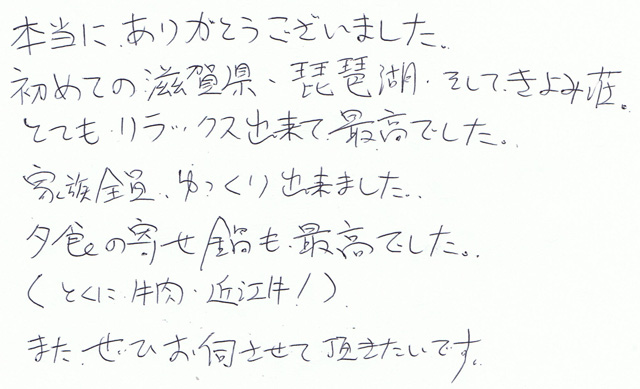 本当に、ありがとうございました。
初めての滋賀県、琵琶湖、そして、きよみ荘。
とても、リラックス出来て、最高でした。
家族全員、ゆっくり出来ました。
夕食の寄せ鍋も、最高でした。
(とくに、牛肉・近江牛!)
また、ぜひ、お伺させて頂きたいです。